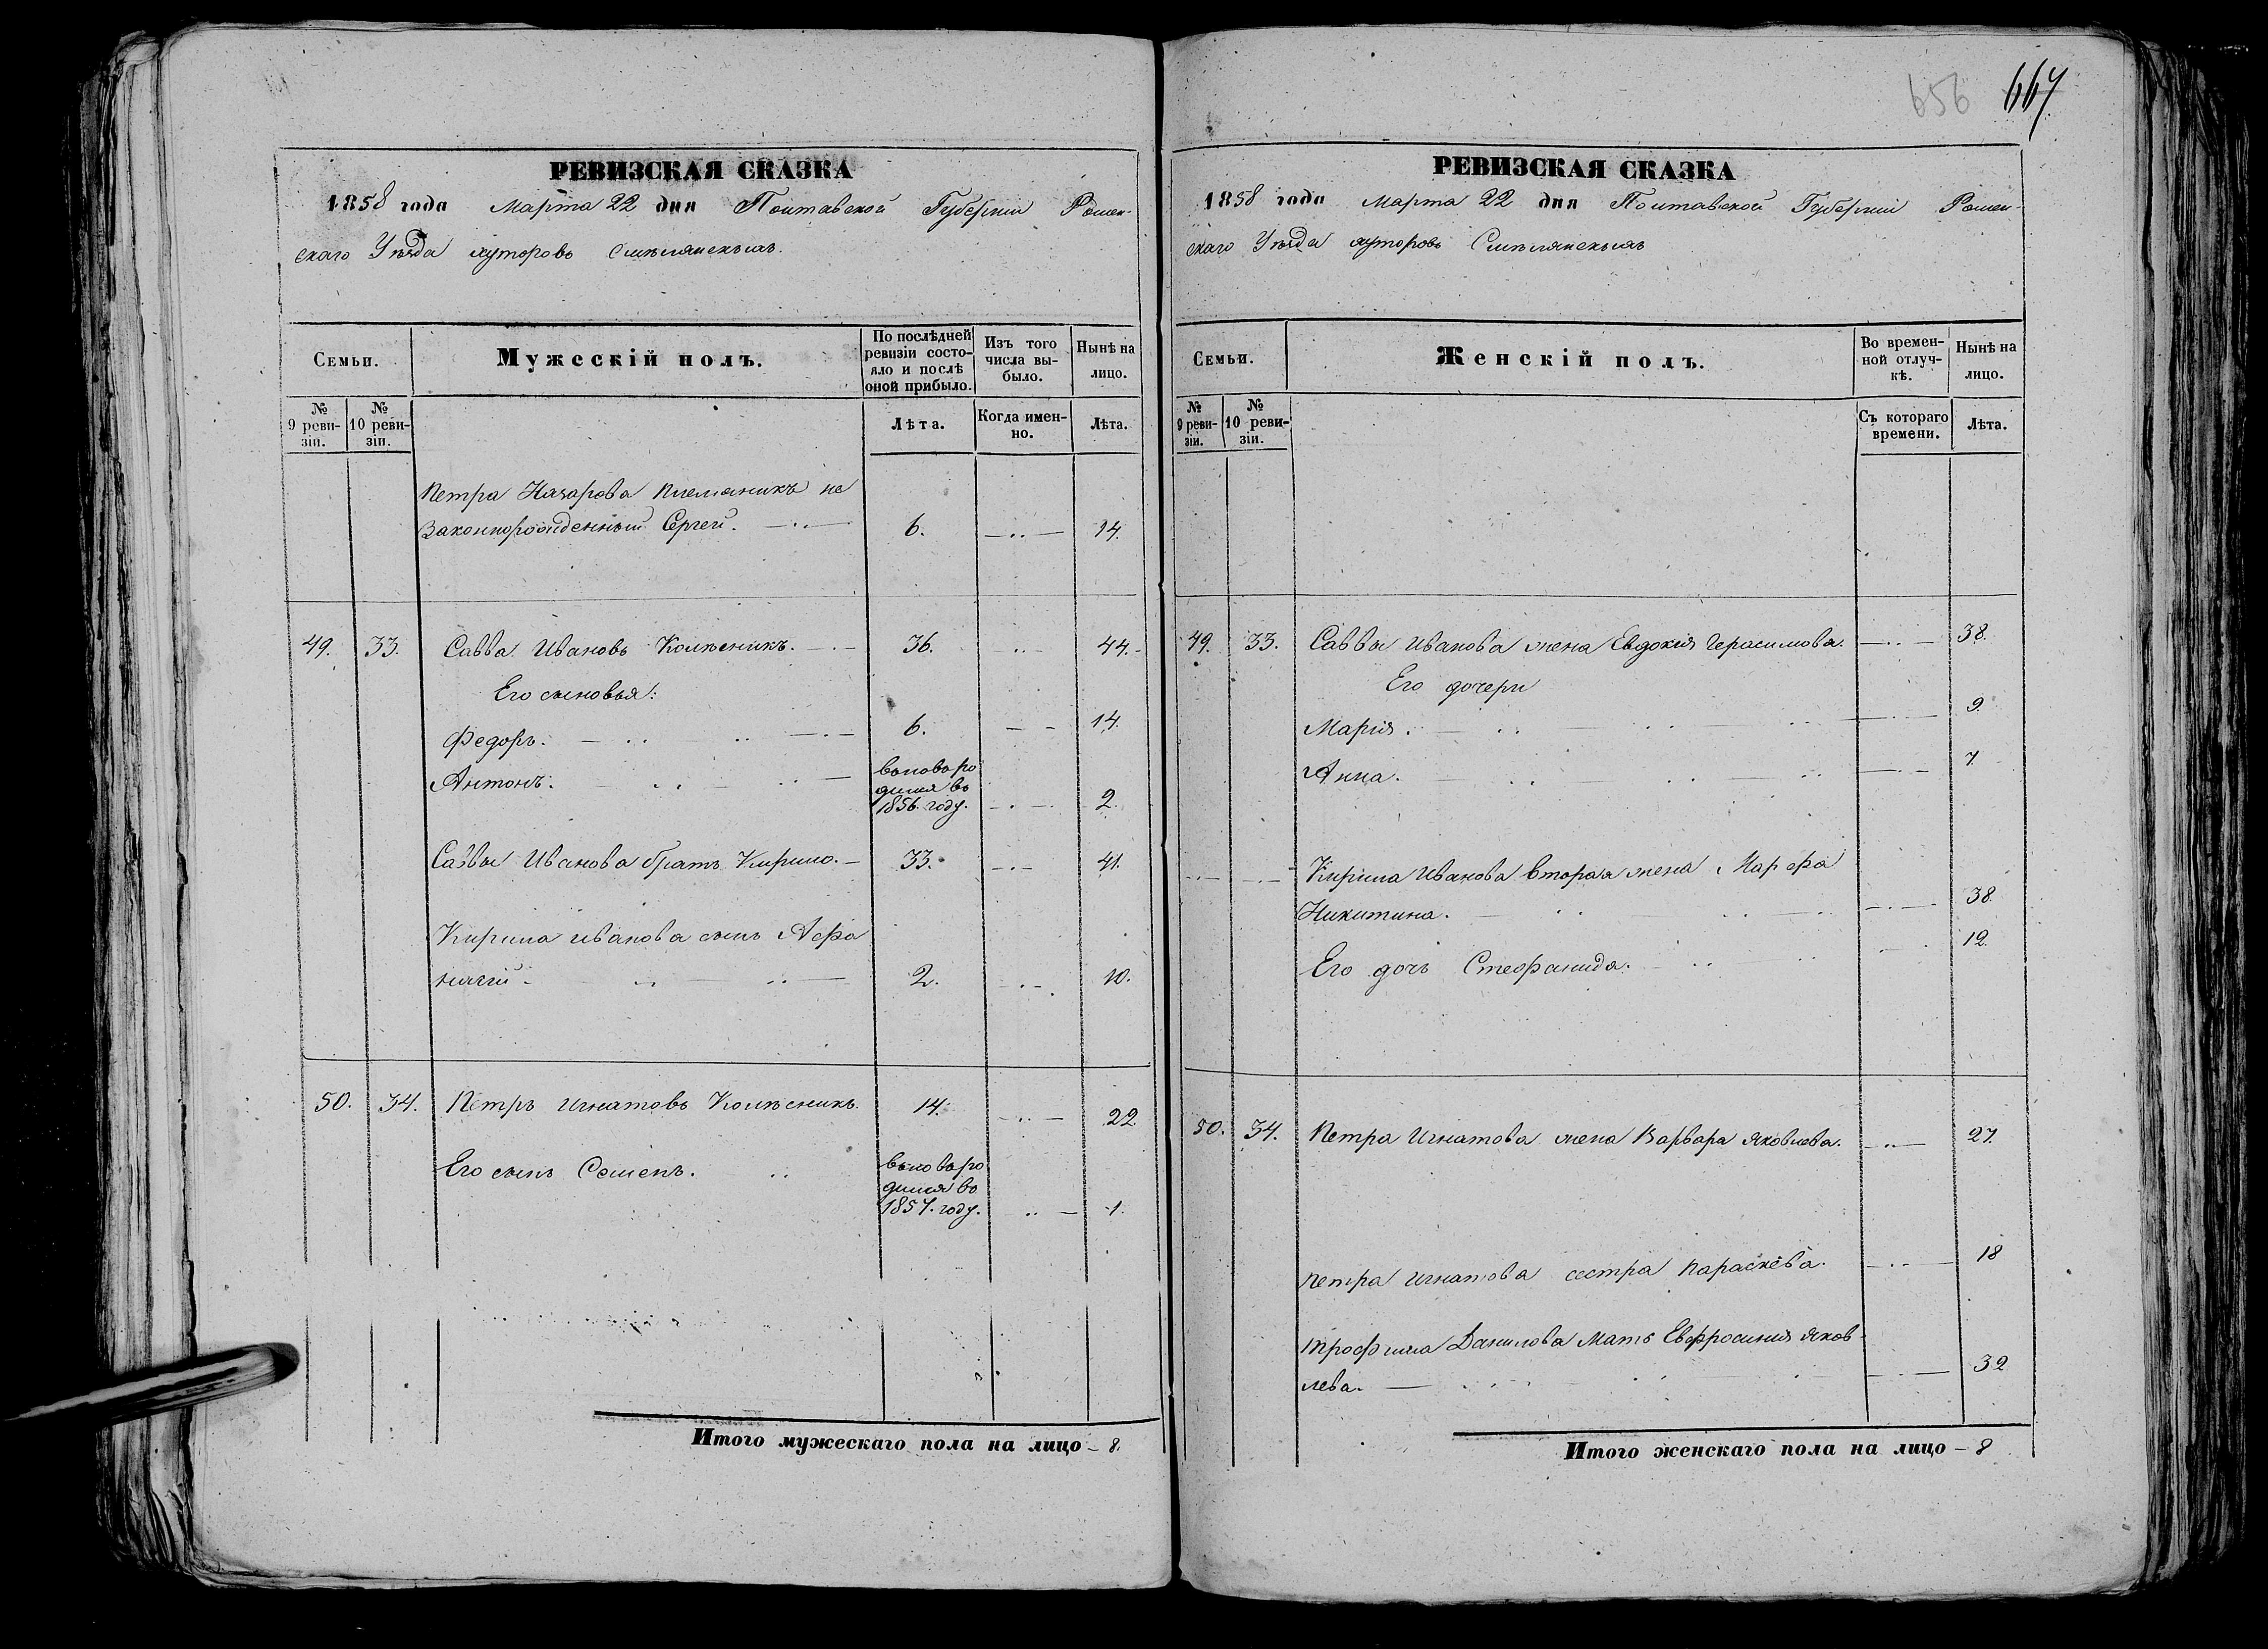 РЕВИЗСКАЯ СКАЗКА
1858 года Марта 22 дня Полтавской Губерніи Ромен-
скаго Уѣзда хуторовъ Смѣлянскихъ.
Семьи.
Мужескій полъ.
По послѣдней ревизіи состо-
яло и послѣ оной прибыло.
Изъ того числа вы-
было.
Нынѣ на лицо.
№ 9 реви-
зіи.
№ 10 реви-
зіи.
Лѣта.
Когда имен-
но.
Лѣта.
Петра Назарова племяникъ не
законнорожденный Сергей. 6. 14.
49. 33. Савва Ивановъ Колѣсникъ. 36. 44.
Его сыновья:
Федоръ. 6. 14.
Антонъ. вьновьро
дился въ
1856. году. 2.
Саввы Иванова братъ Кирило. 33. 41.
Кирила Иванова сынъ Афа
насій 2. 10.
50. 34. Петръ Игнатовъ Колѣсникъ. 14. 22.
Его сынъ Семенъ. вьновьро
дился въ
1857. году. 1.
Итого мужескаго пола на лицо – 8.
656 667
РЕВИЗСКАЯ СКАЗКА
1858 года Марта 22 дня Полтавской Губерніи Ромен-
скаго Уѣзда хуторовъ Смѣлянскихъ
Семьи.
Женскій полъ.
Во времен-
ной отлуч-
кѣ.
Нынѣ на лицо.
№ 9 реви-
зіи.
№ 10 реви-
зіи.
Съ котораго времени.
Лѣта.
49. 33. Саввы Иванова жена Евдокія Герасимова. 38.
Его дочери
Марія. 9.
Анна. 7.
Кирила Иванова вторая жена Марфа
Никитина. 38.
Его дочь Стефанида. 12.
50. 34. Петра Игнатова жена Варвара Яковлева. 27.
Петра Игнатова сестра Параскева. 18
Трофима Данилова Мать Евфросинія Яков-
лева. 32
Итого женскаго пола на лицо – 8